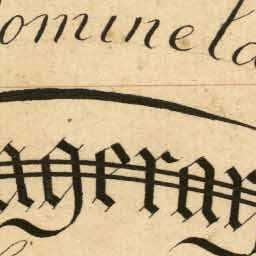 ominela
agerar